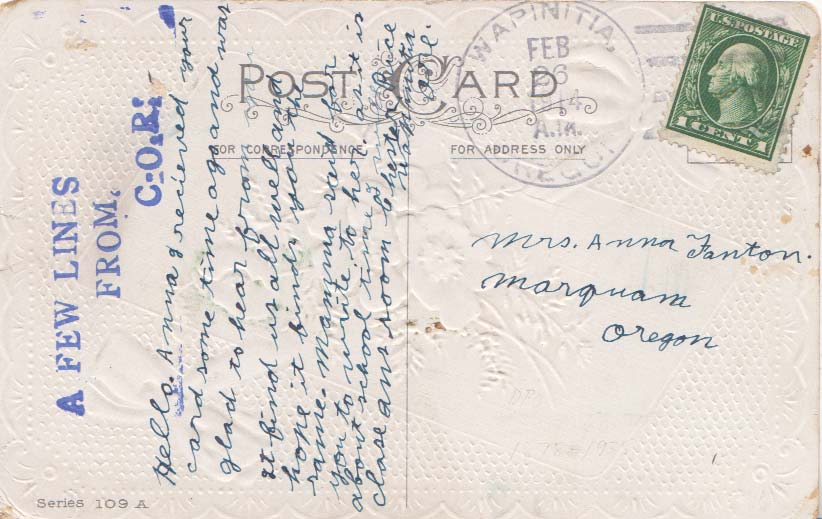 POST CARD
FOR CORRESPONDENCE
FOR ADDRESS ONLY
WAPINITIA,
FEB
26
1914
A.M.
OREGON
U.S. POSTAGE
1 CENT 1
A FEW LINES
FROM,
C.O.R.
Hello. Anna I recieved your
card some time ago and was
glad to hear from
it find us all well and
hope it finds you the
same. mamma said for
you to write to her. as it is
about school time I will
close ans soon Chester
Wapinitia
Mrs. Anna Fanton.
Marquam
Oregon
Series 109 A